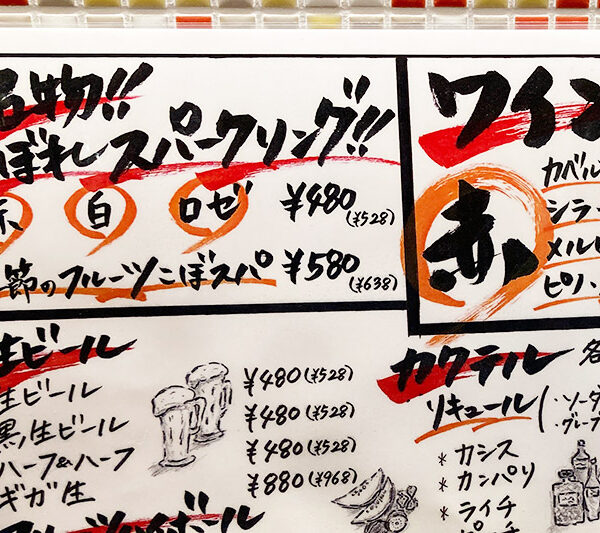 名物!!
こぼれスパークリング!!
赤 白 ロゼ ¥480(¥528)
節のフルーツこぼスパ ¥580(¥638)
生ビール
生ビール ¥480(¥528)
黒生ビール ¥480(¥528)
ハーフ&ハーフ ¥480(¥528)
ギガ生 ¥880(¥968)
ワイン
赤
カベル
シラー
メルロ
ピノ
カクテル 各
リキュール(・ソーダ
・グレープ
*カシス
*カンパリ
*ライチ